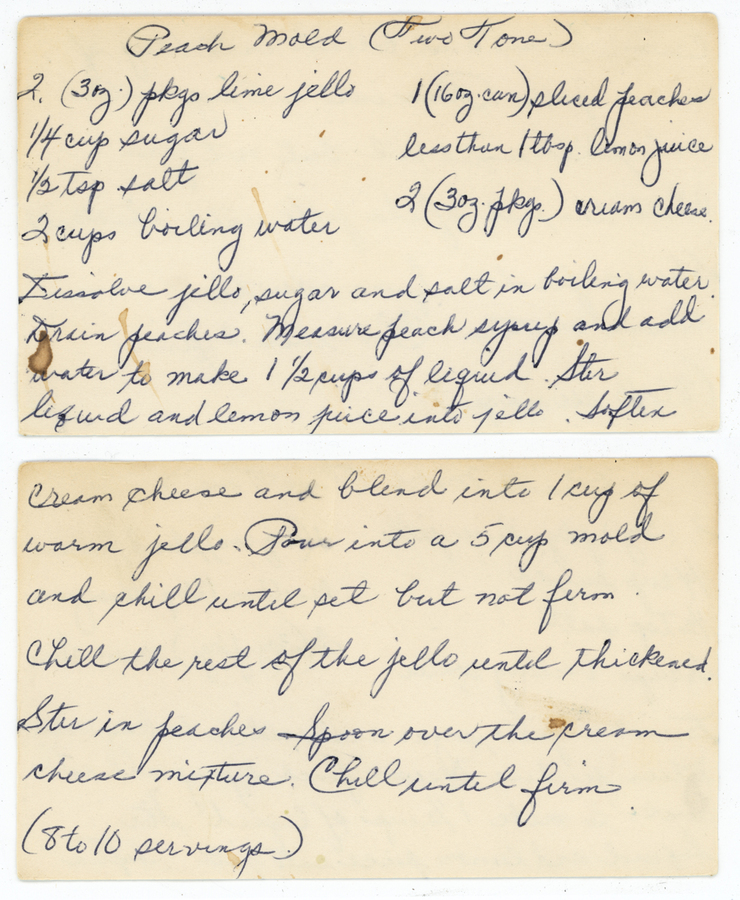 Peach Mold (Two Tone)
2. (3oz.) pkgs lime jello
1/4 cup sugar
1/2 tsp salt
2 cups boiling water
1 (16oz. can) sliced peaches
less than 1 tbsp. lemon juice
2 (3oz. pkgs.) cream cheese.
Dissolve jello, sugar and salt in boiling water.
Drain peaches. Measure peach syrup and add
water to make 1 1/2 cups of liquid. Stir
liquid and lemon juice into jello. Soften
cream cheese and blend into 1 cup of
warm jello. Pour into a 5 cup mold
and chill until set but not firm.
Chill the rest of the jello until thickened.
Stir in peaches Spoon over the cream
cheese mixture. Chill until firm.
(8 to 10 servings.)